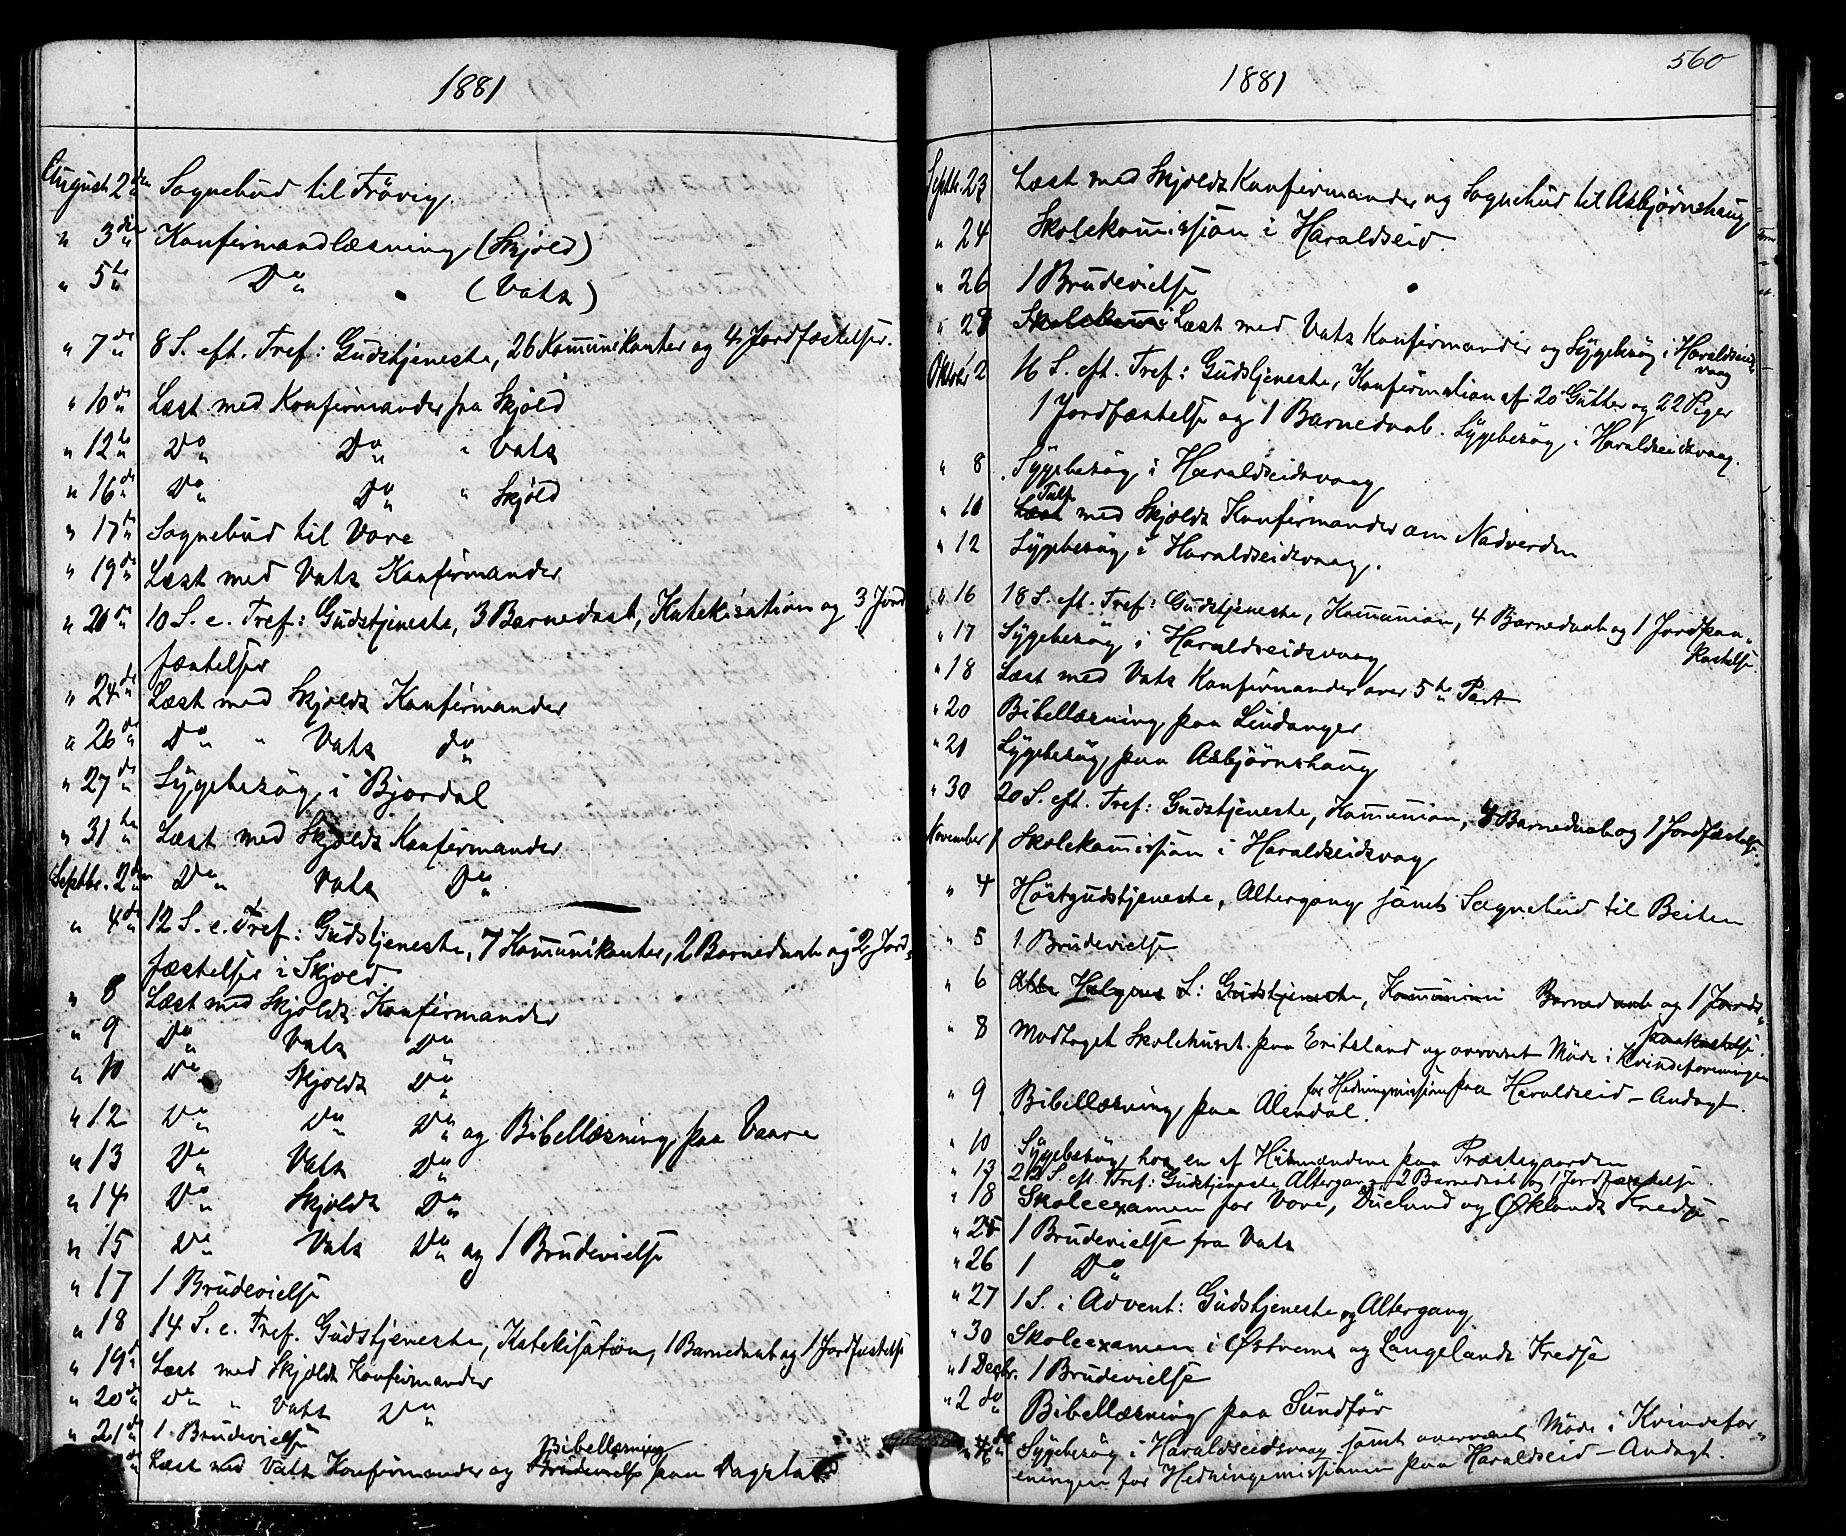 1881
August 2den Sognebud til Frövig.
" 3die Konfirmandlæsning (Skjold)
" 5te Do (Vats)
" 7de 8 S. eft. Tref: Gudstjeneste, 26 Kommunikanter og 4 Jordfæstelser.
" 10de Læst med Konfirmander fra Skjold
" 12te Do Do " Vats
" 16de Do Do " Skjold
" 17de Sognebud til Vore
" 19de Læst med Vats Konfirmander
" 20de 10 S. e. Tref: Gudstjeneste, 3 Barnedaab, Katekisation og 3 Jord
fæstelser
" 24de Læst med Skjolds Konfirmander
" 26de Do " Vats do
" 27de Sygebesøg i Bjordal
" 31te Læst med Skjolds Konfirmander
Septbr. 2den Do Vats Do
" 4de 12 S. e. Tref: Gudstjeneste, 7 Kommunikanter, 2 Barnedaab og 2 Jord=
fæstelser i Skjold
" 8 Læst med Skjolds Konfirmander
" 9 Do Vats Do
" 10 Do Skjolds Do
" 12 Do Do Do og Bibellæsning paa Vaare
" 13 Do Vats Do
" 14 Do Skjolds Do
" 15 Do Vats Do og 1 Brudevielse
" 17 1 Brudevielse
" 18 14 S. e. Tref. Gudstjeneste, Katekisation, 1 Barnedaab og 1 Jordfæstelse
" 19de Læst med Skjolds Konfirmander
" 20de Do " Vats Do
" 21de 1 Brudevielse
Læst med Vats Konfirmander og Brudevielse Bibellæsning paa
560
1881
Septbr. 23 Læst med Skjolds Konfirmander og Sognebud til Asbjørnshaug
" 24 Skolekommission i Haraldseid.
" 26 1 Brudevielse
" 28 Skolekomi Læst med Vats Konfirmander og Sygebesøg i Haraldseids
vaag
Oktober 2 16 S. eft. Tref: Gudstjeneste, Konfirmation af 20 Gutter og 22 Piger
1 Jordfæstelse og 1 Barnedaab. Sygebesøg i Haraldseidsvaag.
" 8 Sygebesøg i Haraldseidsvaag
" 10 Læst Talt med Skjolds Konfirmander om Nadverden
" 12 Sygebesøg i Haraldseidsvaag.
" 16 18 S. eft. Tref: Gudstjeneste, Kommunion, 4 Barnedaab og 1 Jordpaa=
kastelse
" 17 Sygebesøg i Haraldseidsvaag
" 18 Læst med Vats Konfirmander over 5te Part
" 20 Bibellæsning paa Lindanger
" 21 Sygebesøg paa Asbjørnshaug
" 30 20 S. eft. Tref: Gudstjeneste, Kommunion, 4 Barnedaab og 1 Jordfæstelse.
November 1 Skolekommission i Haraldseidsvag
" 4 Høstgudstjeneste, Altergang samt Sognebud til Beiten
" 5 1 Brudevielse
" 6 Alle Helgens S: Gudstjeneste, Kommunion Barnedaab og 1 Jords=
paakastelse.
" 8 Modtaget Skolehuset paa Eritsland og overværet Möde i Kvindeforeningen
for Hedningmissionen paa Haraldseid - Andagt.
" 9 Bibellæsning paa Alendal.
" 10 Sygebesøg hos en af Husmændene paa Præstegaarden
" 13 22 S. eft. Tref: Gudstjeneste Altergang 2 Barnedaab og 1 Jordfæstelse.
" 18 Skoleexamen for Vore, Dueland og Øklands Kredse
" 25 1 Brudevielse fra Vats
" 26 1 Do
" 27 1 S. i Advent: Gudstjeneste og Altergang
" 30 Skoleexamen i Østrems og Langelands Kredse
" 1 Decbr. 1 Brudevielse
" 2 do Bibellæsning paa Sundför
Sygebesøg i Haraldseidsvaag samt overværet Möde i Kvindefor=
eningen for Hedningemissionen paa Haraldseid - Andagt.